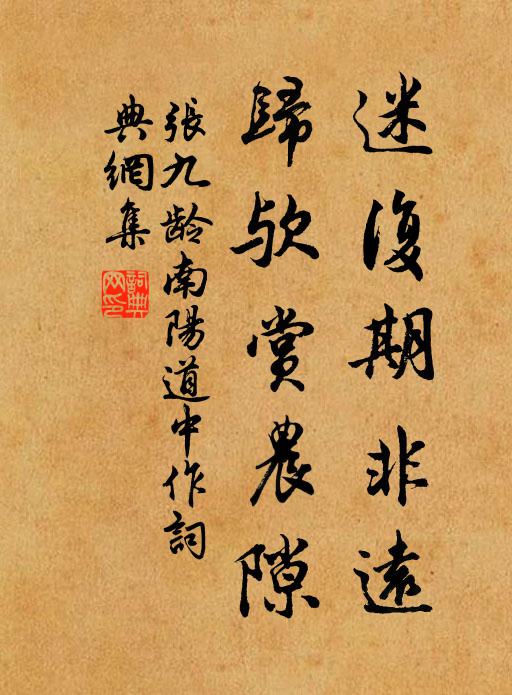 迷復期非遠
歸欤賞農隙
張九龄南陽道中作詞
典網集
詞典
网印